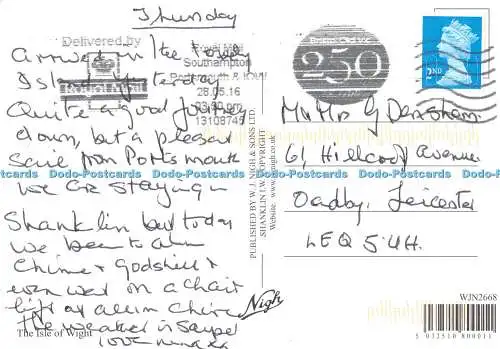 Thursday
Arrived in the
Island yesterday
Quite a good journey
down, but a pleasant
sail from Portsmouth
we are staying in
Shanklin but today
we been to Alum
Chine & Godshill &
even went on a chair
lift at Alum Chine
The weather is
love
Delivered by
Royal Mail
Royal Mail
Southampton
Portsmouth & IOW
28.05.16
13108745
250
2ND
Mr Mrs G Denshom
61, Hillcroft Avenue
Oadby, Leicester
LEQ 5UH.
Dodo-Postcards Dodo-Postcards Dodo-Postcards Dodo-Postcards Dodo-Postcards Dodo-Postcards
PUBLISHED BY W. J. NIGH & SONS LTD.
SHANKLIN I.W. COPYRIGHT
Nigh
The Isle of Wight
WJN2668
5 012510 800011